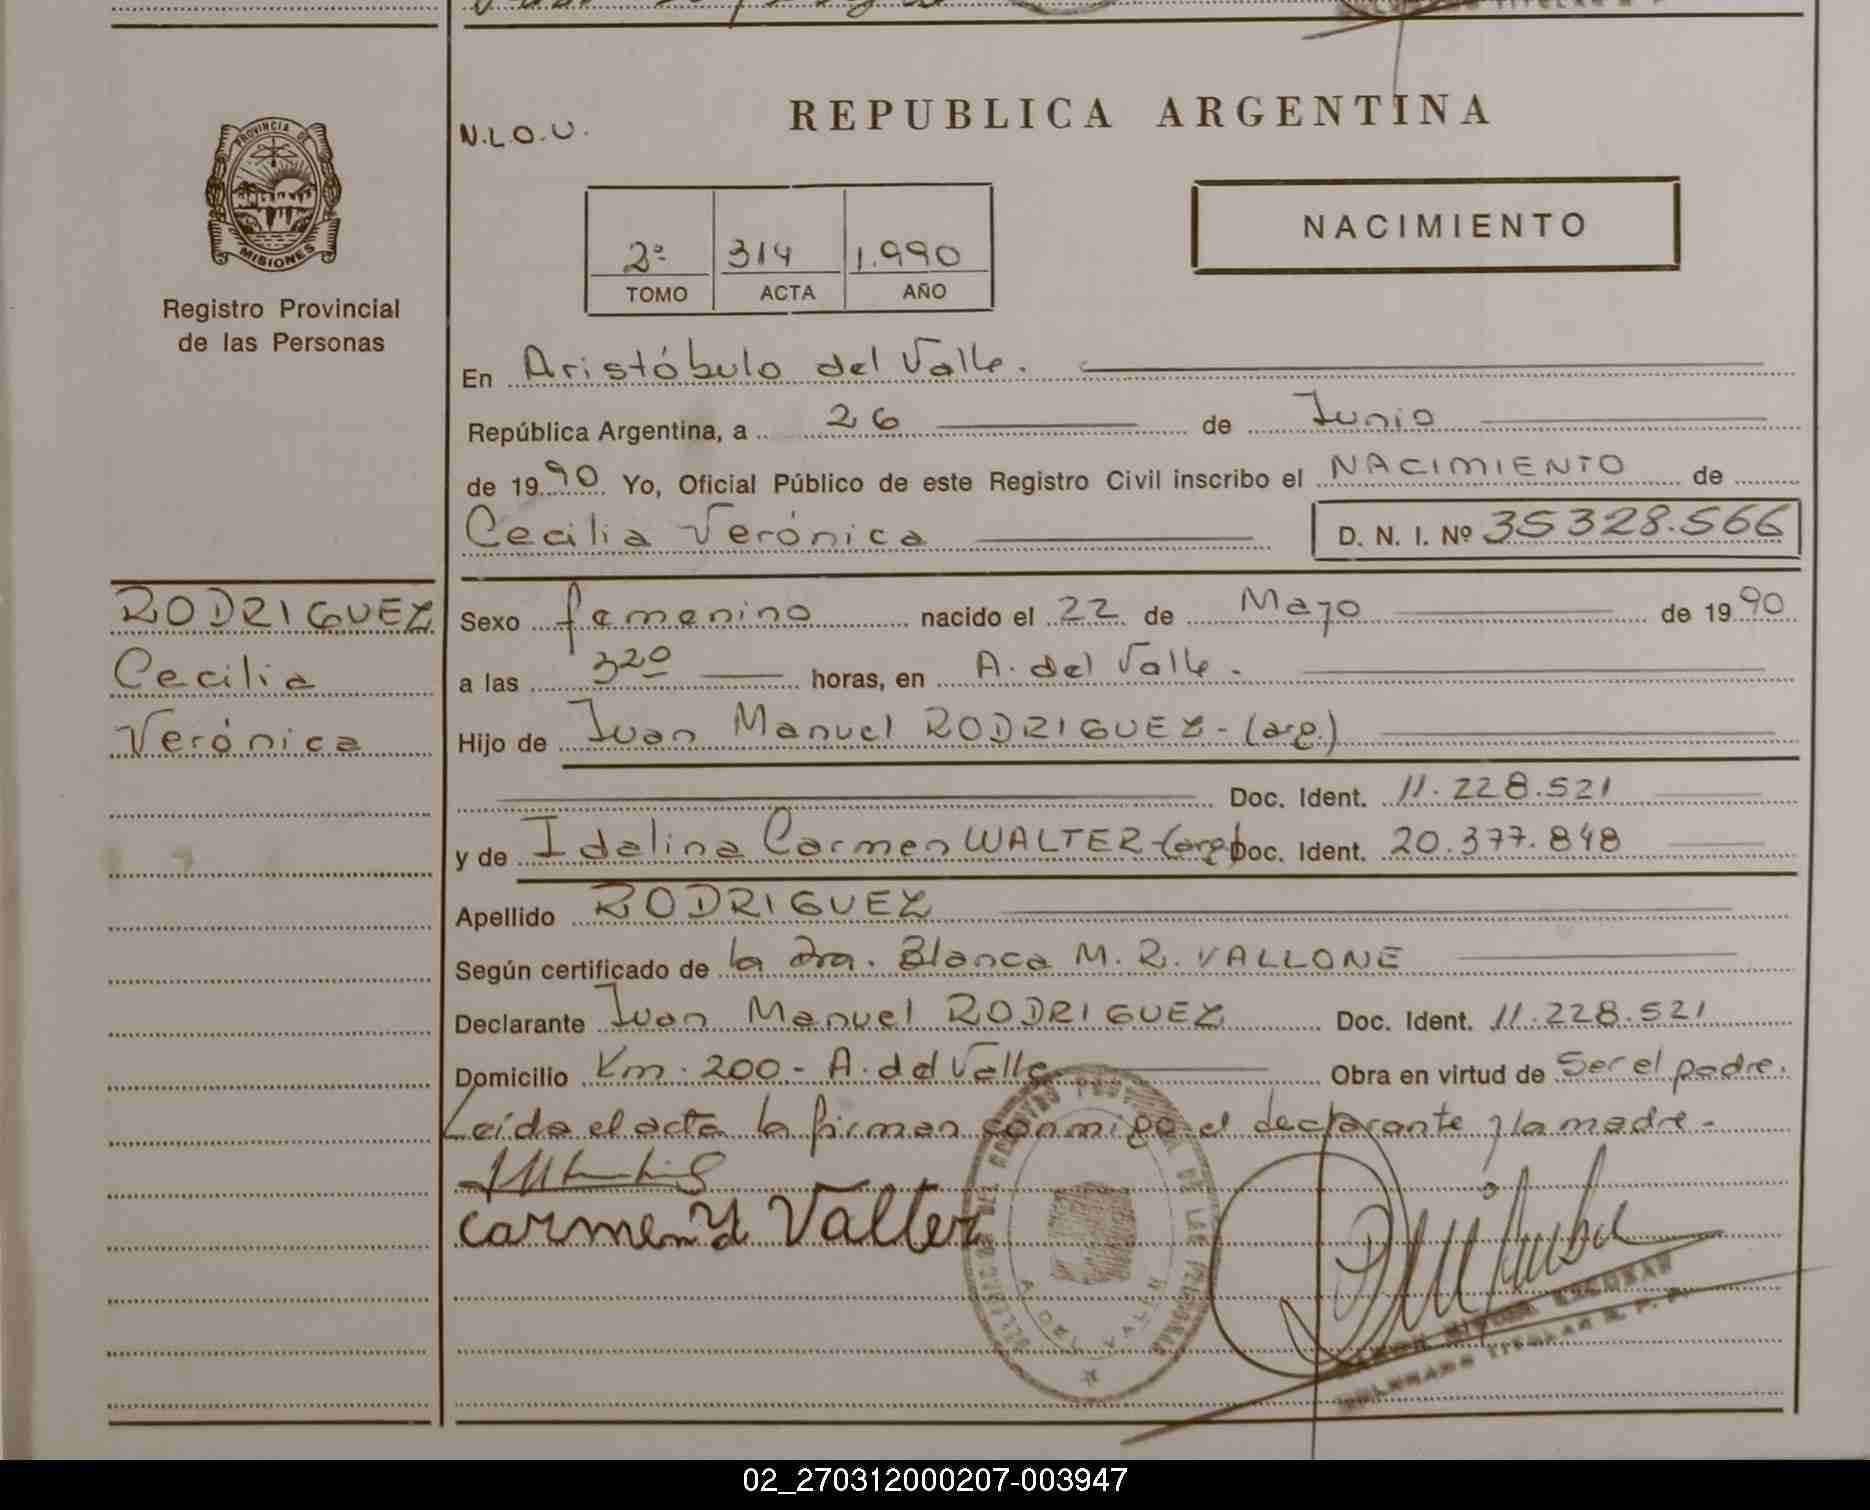 N.L.O.U.
REPUBLICA ARGENTINA
PROVINCIA DE
MISIONES
Registro Provincial
de las Personas
2º 314 1.990
TOMO ACTA AÑO
NACIMIENTO
En Aristóbulo del Valle.
República Argentina, a 26 de Junio
de 1990 Yo, Oficial Público de este Registro Civil inscribo el NACIMIENTO de
Cecilia Verónica D. N. I. Nº 35328.566
RODRIGUEZ
Cecilia
Verónica
Sexo femenino nacido el 22 de Mayo de 1990
a las 320 horas, en A. del Valle.
Hijo de Juan Manuel RODRIGUEZ - (arg.)
Doc. Ident. 11.228.521
y de Idalina Carmen WALTER - (arg) Doc. Ident. 20.377.848
Apellido RODRIGUEZ
Según certificado de la Dra. Blanca M. R. VALLONE
Declarante Juan Manuel RODRIGUEZ Doc. Ident. 11.228.521
Domicilio Km. 200 - A. del Valle Obra en virtud de Ser el padre.
Leída el acta la firman conmigo el declarante y la madre.-
Carmen Y Valter
A. DEL VALLE
DELEGADO TITULAR R. P. P.
02_270312000207-003947